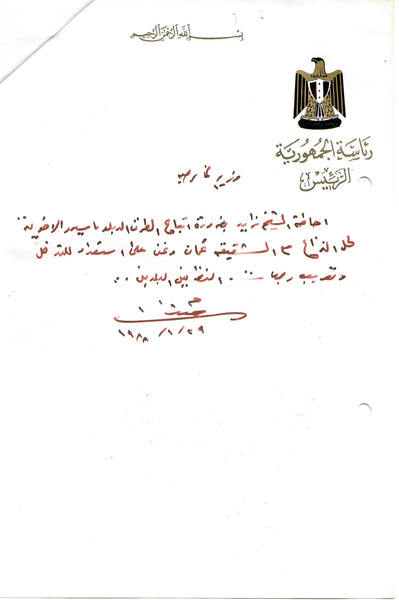 بسم الله الرحمن الرحيم
رئاسة الجمهورية
الرئيس
وزير خارجية
احاطة الشيخ زايد بضرورة اتباع الطرق الدبلوماسية الاخوية
لحل النزاع مع الشقيقة عمان ونحن على استعداد للتدخل
وتقريب وجهات النظر بين البلدين ..
١٩٨٨/١/٢٩